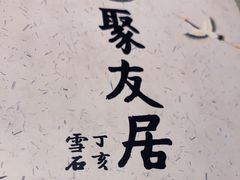 聚友居
丁亥
雪石